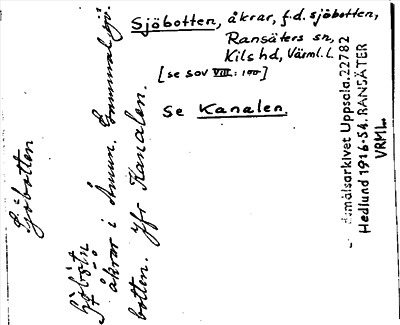 Sjöbotten, åkrar, f.d. sjöbotten,
Ransäters sn,
Kils hd, Värml. l.
[se SOV VIII: 100]
Se Kanalen.
Sjöbotten
åkrar i Åmun. Gammal sjö-
botten. Jfr Kanalen.
målsarkivet Uppsala. 22782
Hedlund 1916-54. RANSÄTER
VRML.